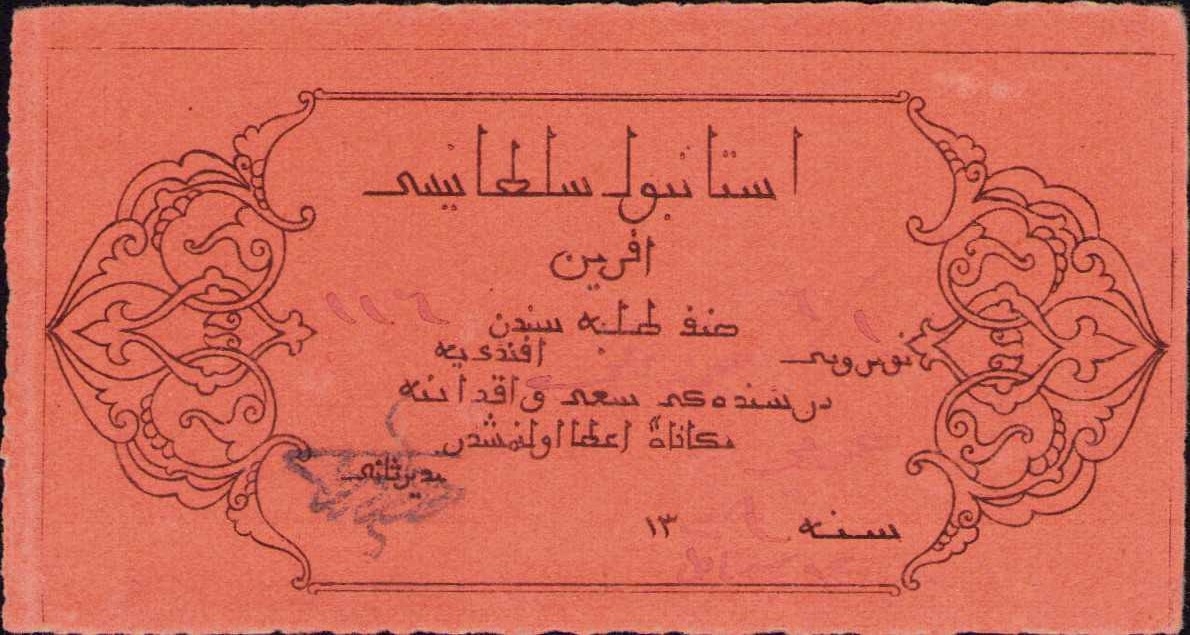 استانبول سلطانیسی
افرین
صنف طلبه سندن
نومرولی افندی یه
درسنده کی سعی و اقدامنه
مکافاةً اعطا اولنمشدر
مدیر ثانی
سنه ١٣